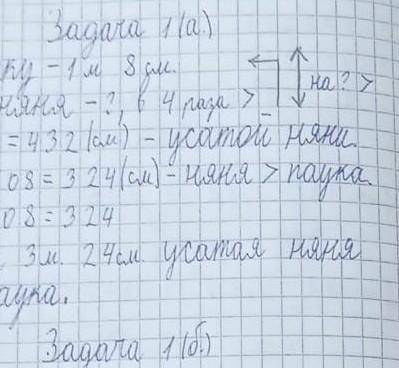 Задача 1(а.)
ку - 1 м 8 дм.
няня - ?, в 4 раза > на ? >
= 432 (см) - усатой няни.
08 = 324 (см) - няня > паука.
08 = 324
3м. 24см. усатая няня
аука.
Задача 1(б.)